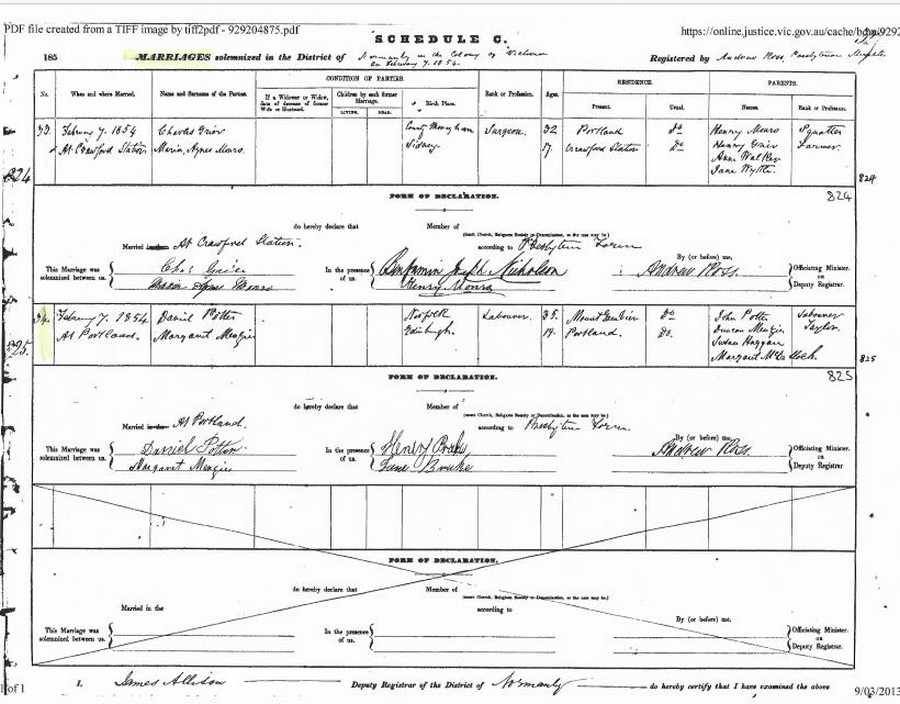 PDF file created from a TIFF image by tiff2pdf - 929204875.pdf
https://online.justice.vic.gov.au/cache/bdm/9292
SCHEDULE C.
185 MARRIAGES solemnized in the District of Normanby in the Colony of Victoria Registered by Andrew Ross, Presbyterian
on February 7. 1854.
CONDITION OF PARTIES. RESIDENCE. PARENTS.
No. When and where Married. Name and Surname of the Parties. If a Widower or Widow, date of decease of former Wife or Husband. Children by each former Marriage. Birth Place. Rank or Profession. Ages. Present. Usual. Names. Rank or Profession.
LIVING. DEAD.
33. February 7. 1854 Charles Grier County Monaghan Surgeon. 32 Portland do Henry Monro Squatter
At Crawford Station. Maria Agnes Monro. Sidney. 17. Crawford Station Do Henry Grier Farmer.
Anne Walker
Jane Wyllie.
824 824
FORM OF DECLARATION. 824
do hereby declare that Member of
(insert Church, Religious Society or Denomination, as the case may be.)
Married At Crawford Station. according to Presbyterian Form
By (or before) me,
This Marriage was solemnized between us. Chas Grier In the presence of us. Benjamin Joseph Nicholson Andrew Ross. Officiating Minister. or Deputy Registrar.
Maria Agnes Monro Henry Monro
34. February 7. 1854 Daniel Potter Norfolk Labourer. 35. Mount Gambier Do John Potter Labourer
At Portland. Margaret Menzies Edinburgh. 19. Portland. Do. Duncan Menzies Taylor.
Susan Haggar
Margaret McCulloch.
825 825
FORM OF DECLARATION. 825
do hereby declare that Member of
(insert Church, Religious Society or Denomination, as the case may be.)
Married At Portland. according to Presbyterian Form.
By (or before) me,
This Marriage was solemnized between us. Daniel Potter In the presence of us. Henry Andrew Ross. Officiating Minister. or Deputy Registrar
Margaret Menzies Jane
FORM OF DECLARATION.
do hereby declare that Member of
(insert Church, Religious Society or Denomination, as the case may be.)
Married in the according to
By (or before) me,
This Marriage was solemnized between us. In the presence of us. Officiating Minister. or Deputy Registrar.
I, James Allison Deputy Registrar of the District of Normanby do hereby certify that I have examined the above
1 of 1 9/03/2013